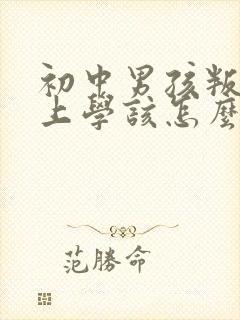 初中男孩叛
上學該怎麼
范勝命